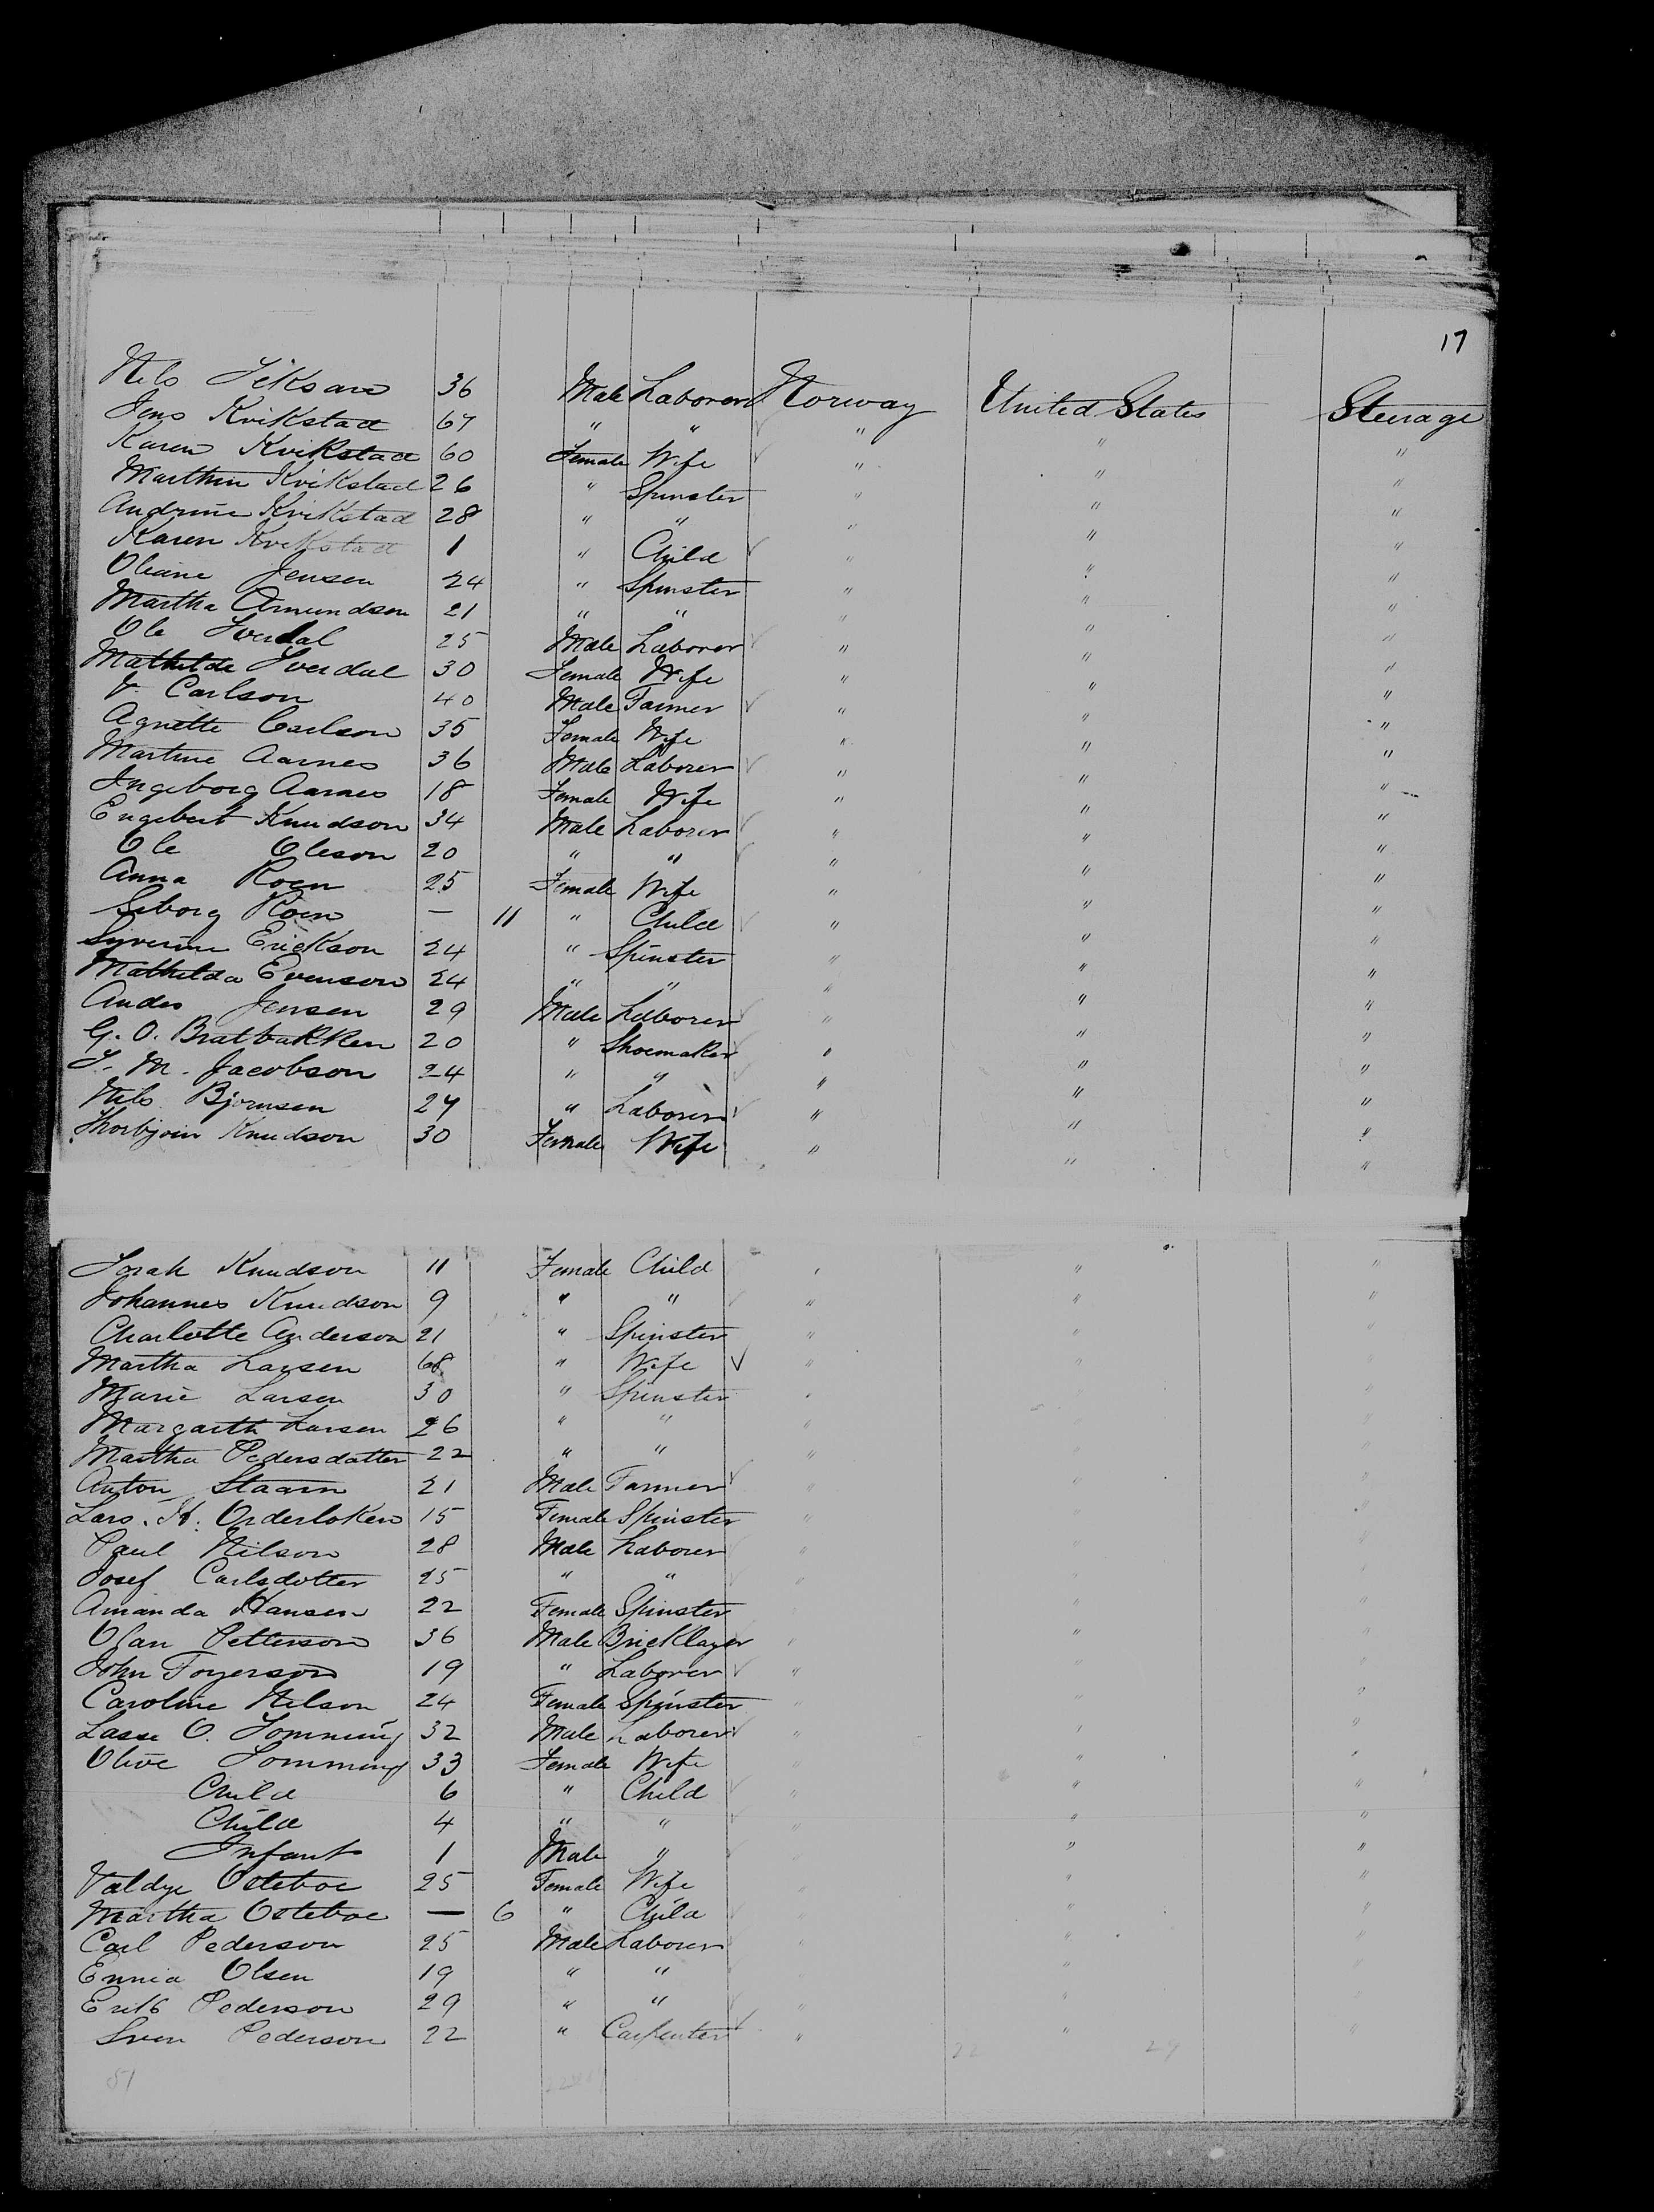 17
Nils Jeksare 36 Male Laborer Norway United States Steerage
Jens Kvikstad 67 " " " " "
Karen Kvikstad 60 Female Wife " " "
Marthin Kvikstad 26 " Spinster " " "
Andrine Kvikstad 28 " " " " "
Karen Kvikstad 1 " Child " " "
Oliane Jensen 24 " Spinster " " "
Martha Amundson 21 " " " " "
Ole Sverdal 25 Male Laborer " " "
Mathilde Sverdal 30 Female Wife " " "
V. Carlson 40 Male Farmer " " "
Agnette Carlson 35 Female Wife " " "
Martine Aarnes 36 Male Laborer " " "
Ingeborg Aarnes 18 Female Wife " " "
Engebert Knudson 34 Male Laborer " " "
Ole Oleson 20 " " " " "
Anna Roen 25 Female Wife " " "
Seborg Roen — 11 " Child " " "
Syverine Erickson 24 " Spinster " " "
Mathilda Evenson 24 " " " " "
Andes Jensen 29 Male Laborer " " "
G. O. Bratbakken 20 " Shoemaker " " "
J. M. Jacobson 24 " " " " "
Nils Bjornsen 27 " Laborer " " "
Thorbjoin Knudson 30 Female Wife " " "
Jorah Knudson 11 Female Child " " "
Johannes Knudson 9 " " " " "
Charlotte Anderson 21 " Spinster " " "
Martha Larsen 68 " Wife " " "
Marie Larsen 30 " Spinster " " "
Margarth Larsen 26 " " " " "
Martha Pedersdatter 22 " " " " "
Anton Staam 21 Male Farmer " " "
Lars. St. Orderloken 15 Female Spinster " " "
Paul Nilson 28 Male Laborer " " "
Josef Carlsdotter 25 " " " " "
Amanda Hansen 22 Female Spinster " " "
Olan Petterson 36 Male Bricklayer " " "
John Toyerson 19 " Laborer " " "
Caroline Nelson 24 Female Spinster " " "
Lasse O. Tomming 32 Male Laborer " " "
Olive Tomming 33 Female Wife " " "
Child 6 " Child " " "
Child 4 " " " " "
Infant 1 Male " " " "
Valdye Osteboe 25 Female Wife " " "
Martha Osteboe — 6 " Child " " "
Carl Pederson 25 Male Laborer " " "
Ennia Olsen 19 " " " " "
Erik Pederson 29 " " " " "
Sven Pederson 22 " Carpenter " " "
22 29
51